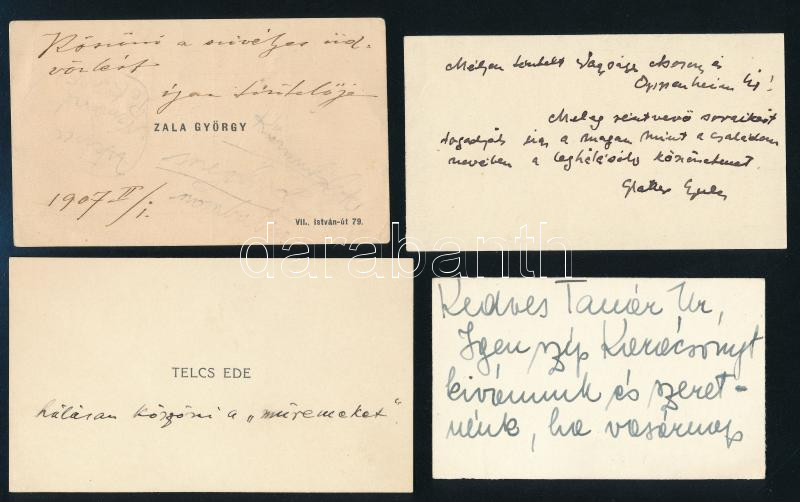 Köszöni a szivélyes üd-
vözlést
igaz tisztelője
ZALA GYÖRGY
1907 II/1.
VII., István-út 79.
Mélyen tisztelt Nagysága Asszony és
Oppenheim Úr!
Meleg részvevő soraikért
fogadják úgy a magam mint a családom
nevében a leghálásabb köszönetemet.
TELCS EDE
hálásan köszöni a „műremeket”.
Kedves Tanár Ur,
Igen szép Karácsonyt
kivánunk és szeret-
nénk, ha vasárnap
darabanth